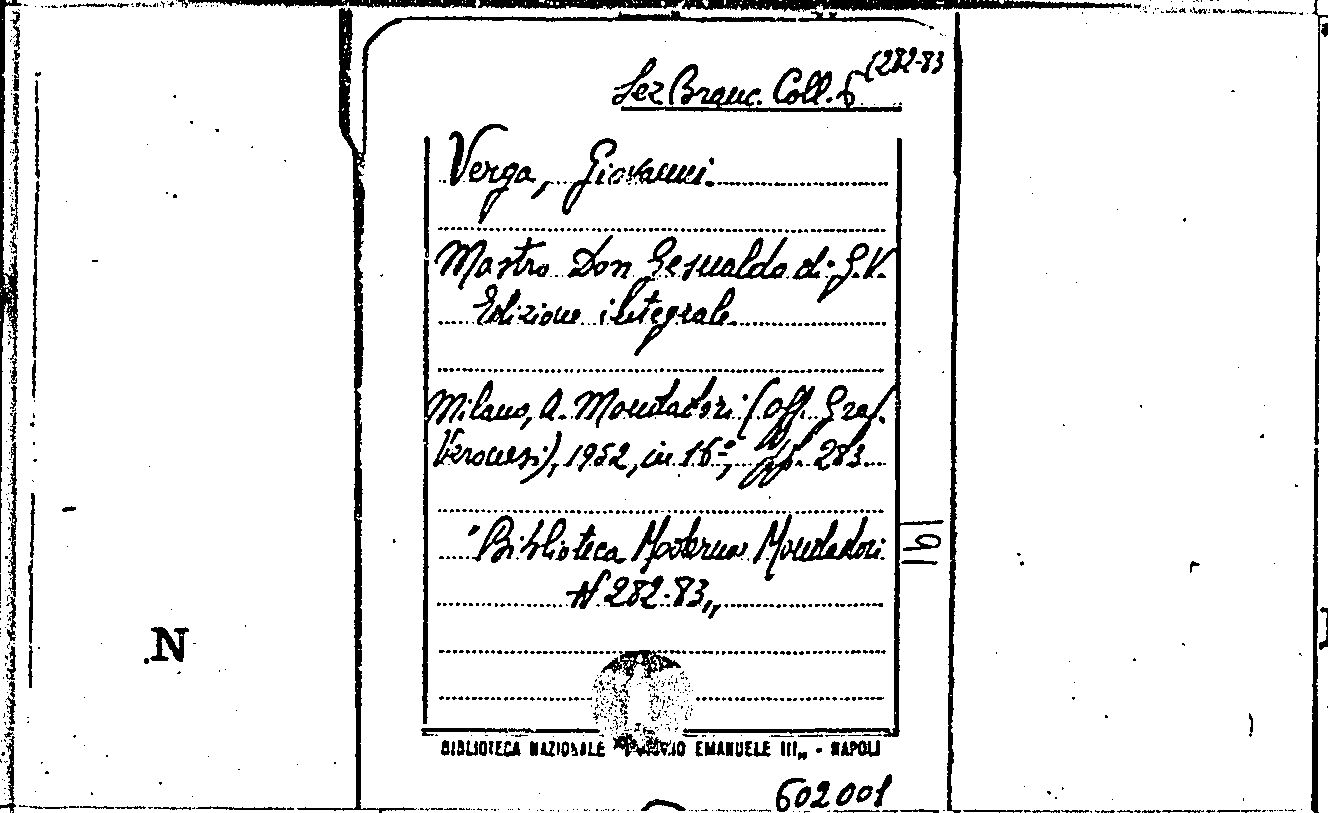 Sez Branc. Coll. 6 (282-83
Verga, Giovanni.
Mastro Don Gesualdo di G.V.
Edizione integrale.
Milano, A. Mondadori (Off. Graf.
Veronesi), 1952, in 16º, pp. 283.
"Biblioteca Moderna Mondadori
N 282-83„
161
N
BIBLIOTECA NAZIONALE VITTORIO EMANUELE III„ - NAPOLI
602001